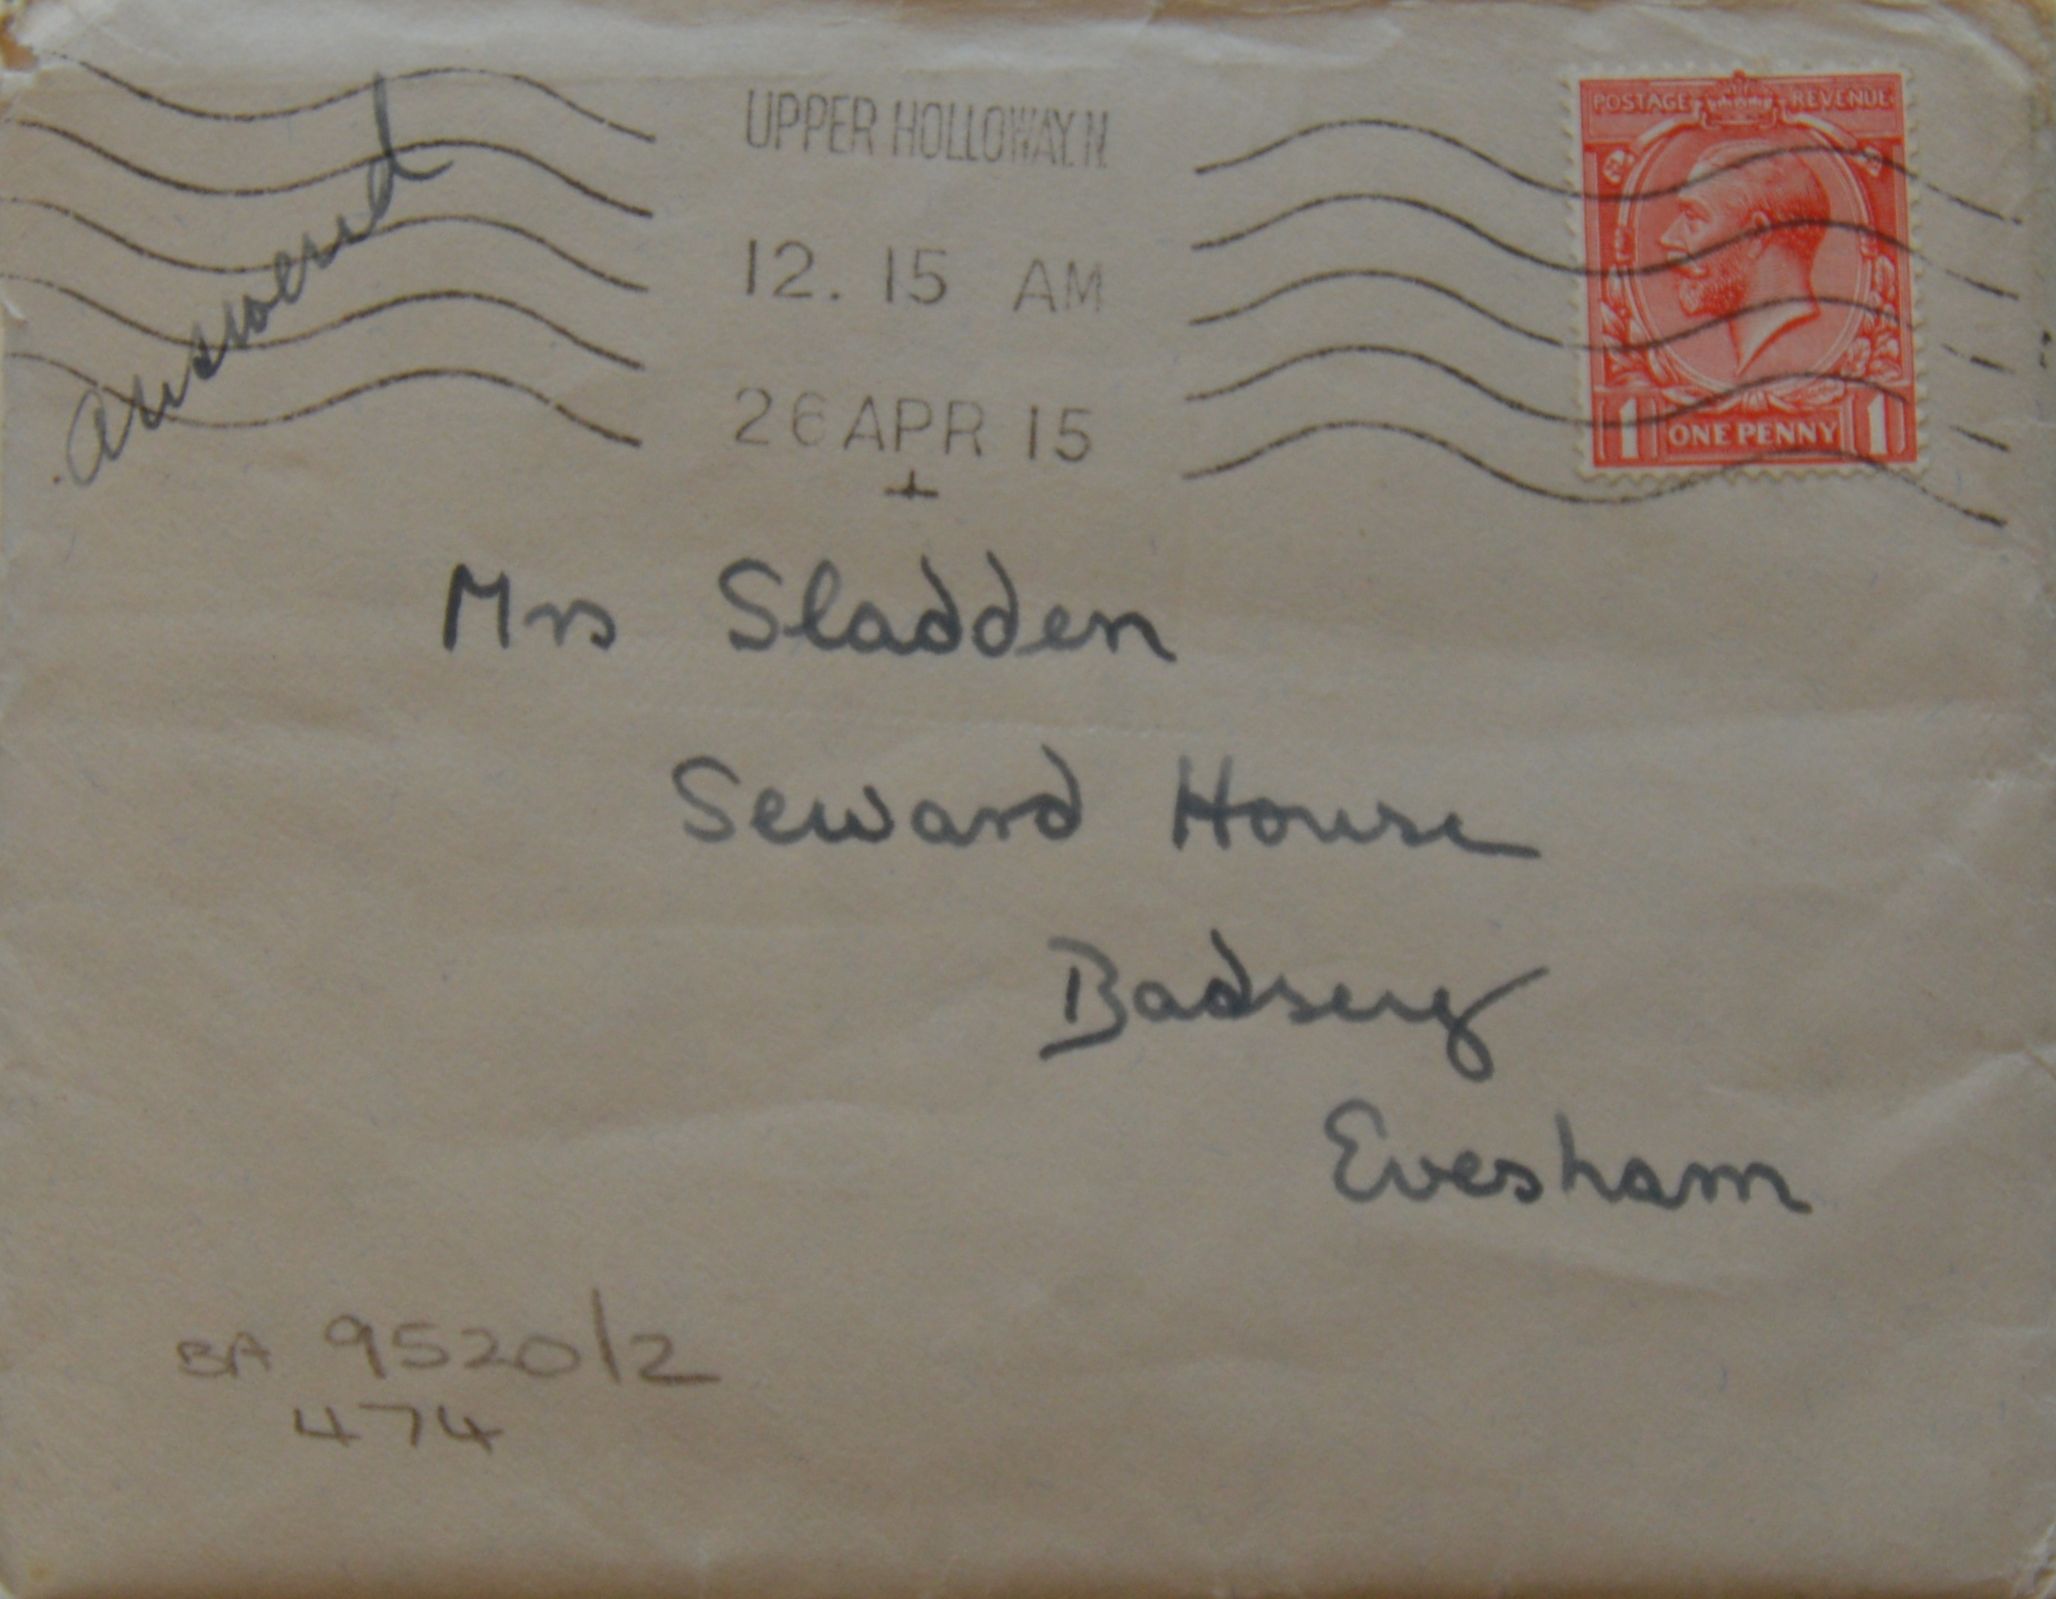 answered
UPPER HOLLOWAY.N
12. 15 AM
26 APR 15
POSTAGE REVENUE
1 ONE PENNY 1
Mrs Sladden
Seward House
Badsey
Evesham
BA 9520/2
474